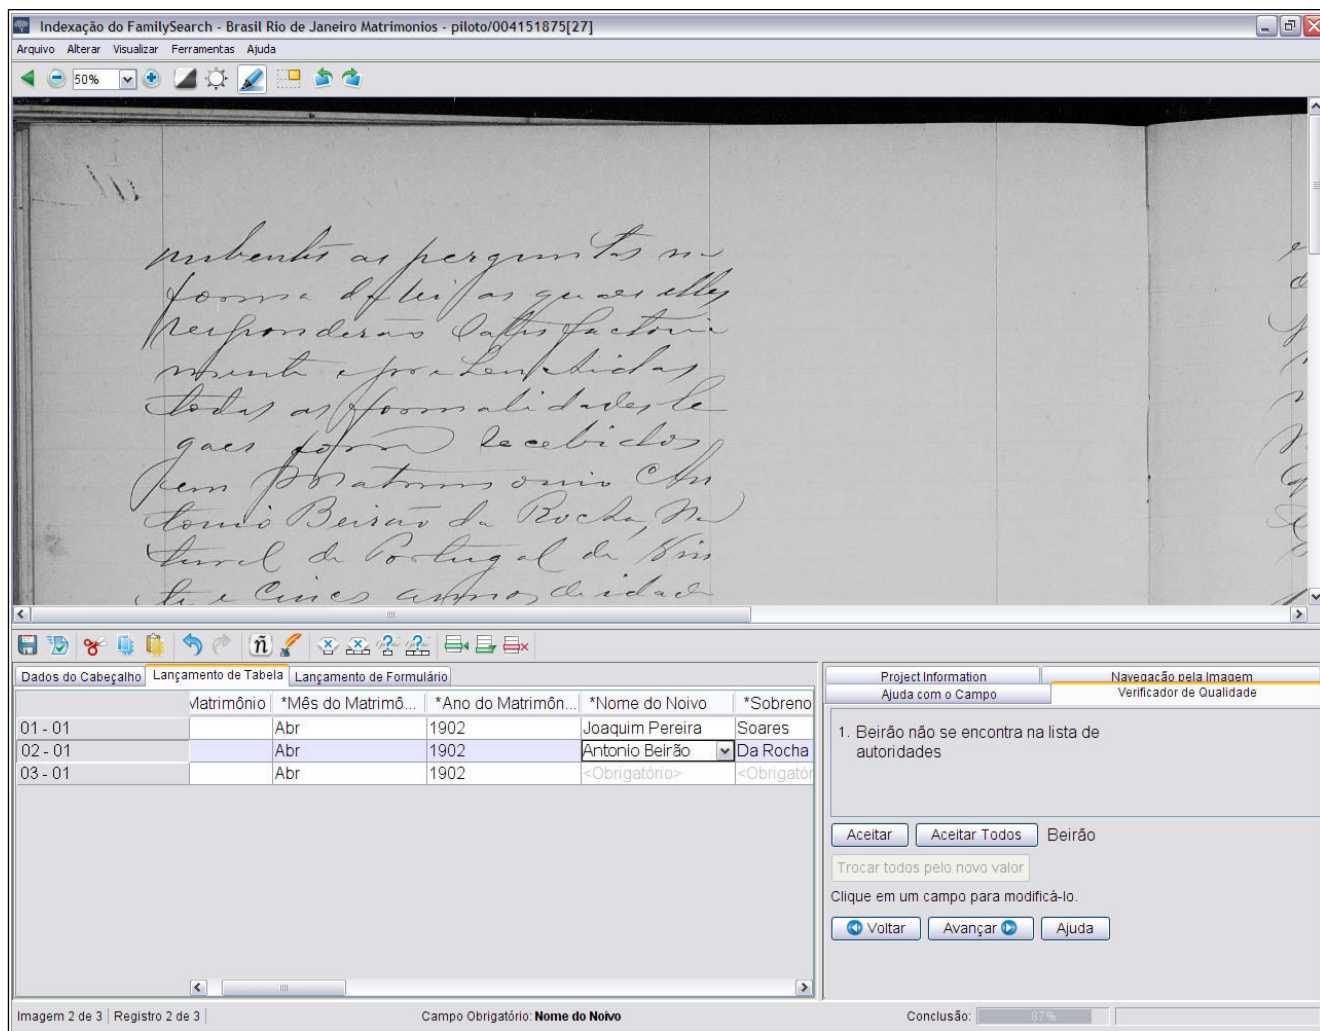 Indexação do FamilySearch - Brasil Rio de Janeiro Matrimonios - piloto/004151875[27]
Arquivo Alterar Visualizar Ferramentas Ajuda
50%
nubentes as perguntas na
forma da lei, as quaes elles
responderão satisfactoria
mente e
todas as formalidades le
gaes forão recebidos
em Matrimonio An
tonio Beirão da Rocha, Na
tural de Portugal de Vin
te e cinco annos de idade
Dados do Cabeçalho Lançamento de Tabela Lançamento de Formulário
Matrimônio *Mês do Matrimô... *Ano do Matrimôn... *Nome do Noivo *Sobreno
01 - 01 Abr 1902 Joaquim Pereira Soares
02 - 01 Abr 1902 Antonio Beirão Da Rocha
03 - 01 Abr 1902 <Obrigatório> <Obrigatór
Project Information Navegação pela Imagem
Ajuda com o Campo Verificador de Qualidade
1. Beirão não se encontra na lista de
autoridades
Aceitar Aceitar Todos Beirão
Trocar todos pelo novo valor
Clique em um campo para modificá-lo.
Voltar Avançar Ajuda
Imagem 2 de 3 Registro 2 de 3 Campo Obrigatório: Nome do Noivo Conclusão: 87%